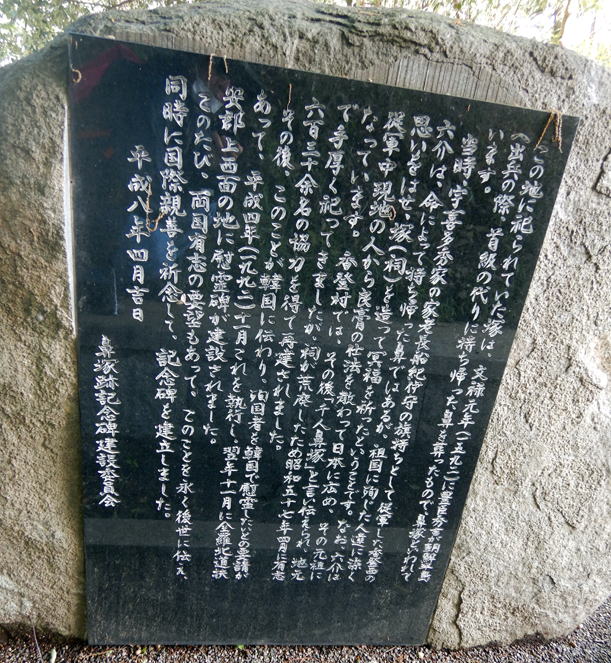 この地に祀られていた塚は、文禄元年(一五九二)に豊臣秀吉が朝鮮半島
へ出兵の際、首級の代りに持ち帰った鼻を葬ったもので、鼻塚といわれて
います。
当時、宇喜多秀家の家老長船紀伊守の旗持ちとして従軍した香登西の
六介は、命によって持ち帰った鼻ではあるが、祖国に殉じた人達に深く
思いをはせ、塚(祠)を造って冥福を祈ったということです。なお、六介は
従軍中現地の人から瓦膏の仕法を教わって日本に広め、その元祖に
なっています。香登村では、その後「千人鼻塚」と言い伝えられ、地元
で手厚く祀ってきましたが、祠が荒廃したため昭和五十七年四月に有志
六百三十余名の協力を得て、再建されました。
その後、このことが韓国に伝わり、殉国者を韓国で慰霊したいとの要請が
あって、平成四年(一九九二)十一月これを執行し、翌年十一月に全羅北道扶
安郡上西面の地に慰霊碑が建設されました。
このたび、両国有志の要望もあって、このことを永く後世に伝え、
同時に国際親善を祈念して、記念碑を建立しました。
平成八年四月吉日
鼻塚跡記念碑建設委員会